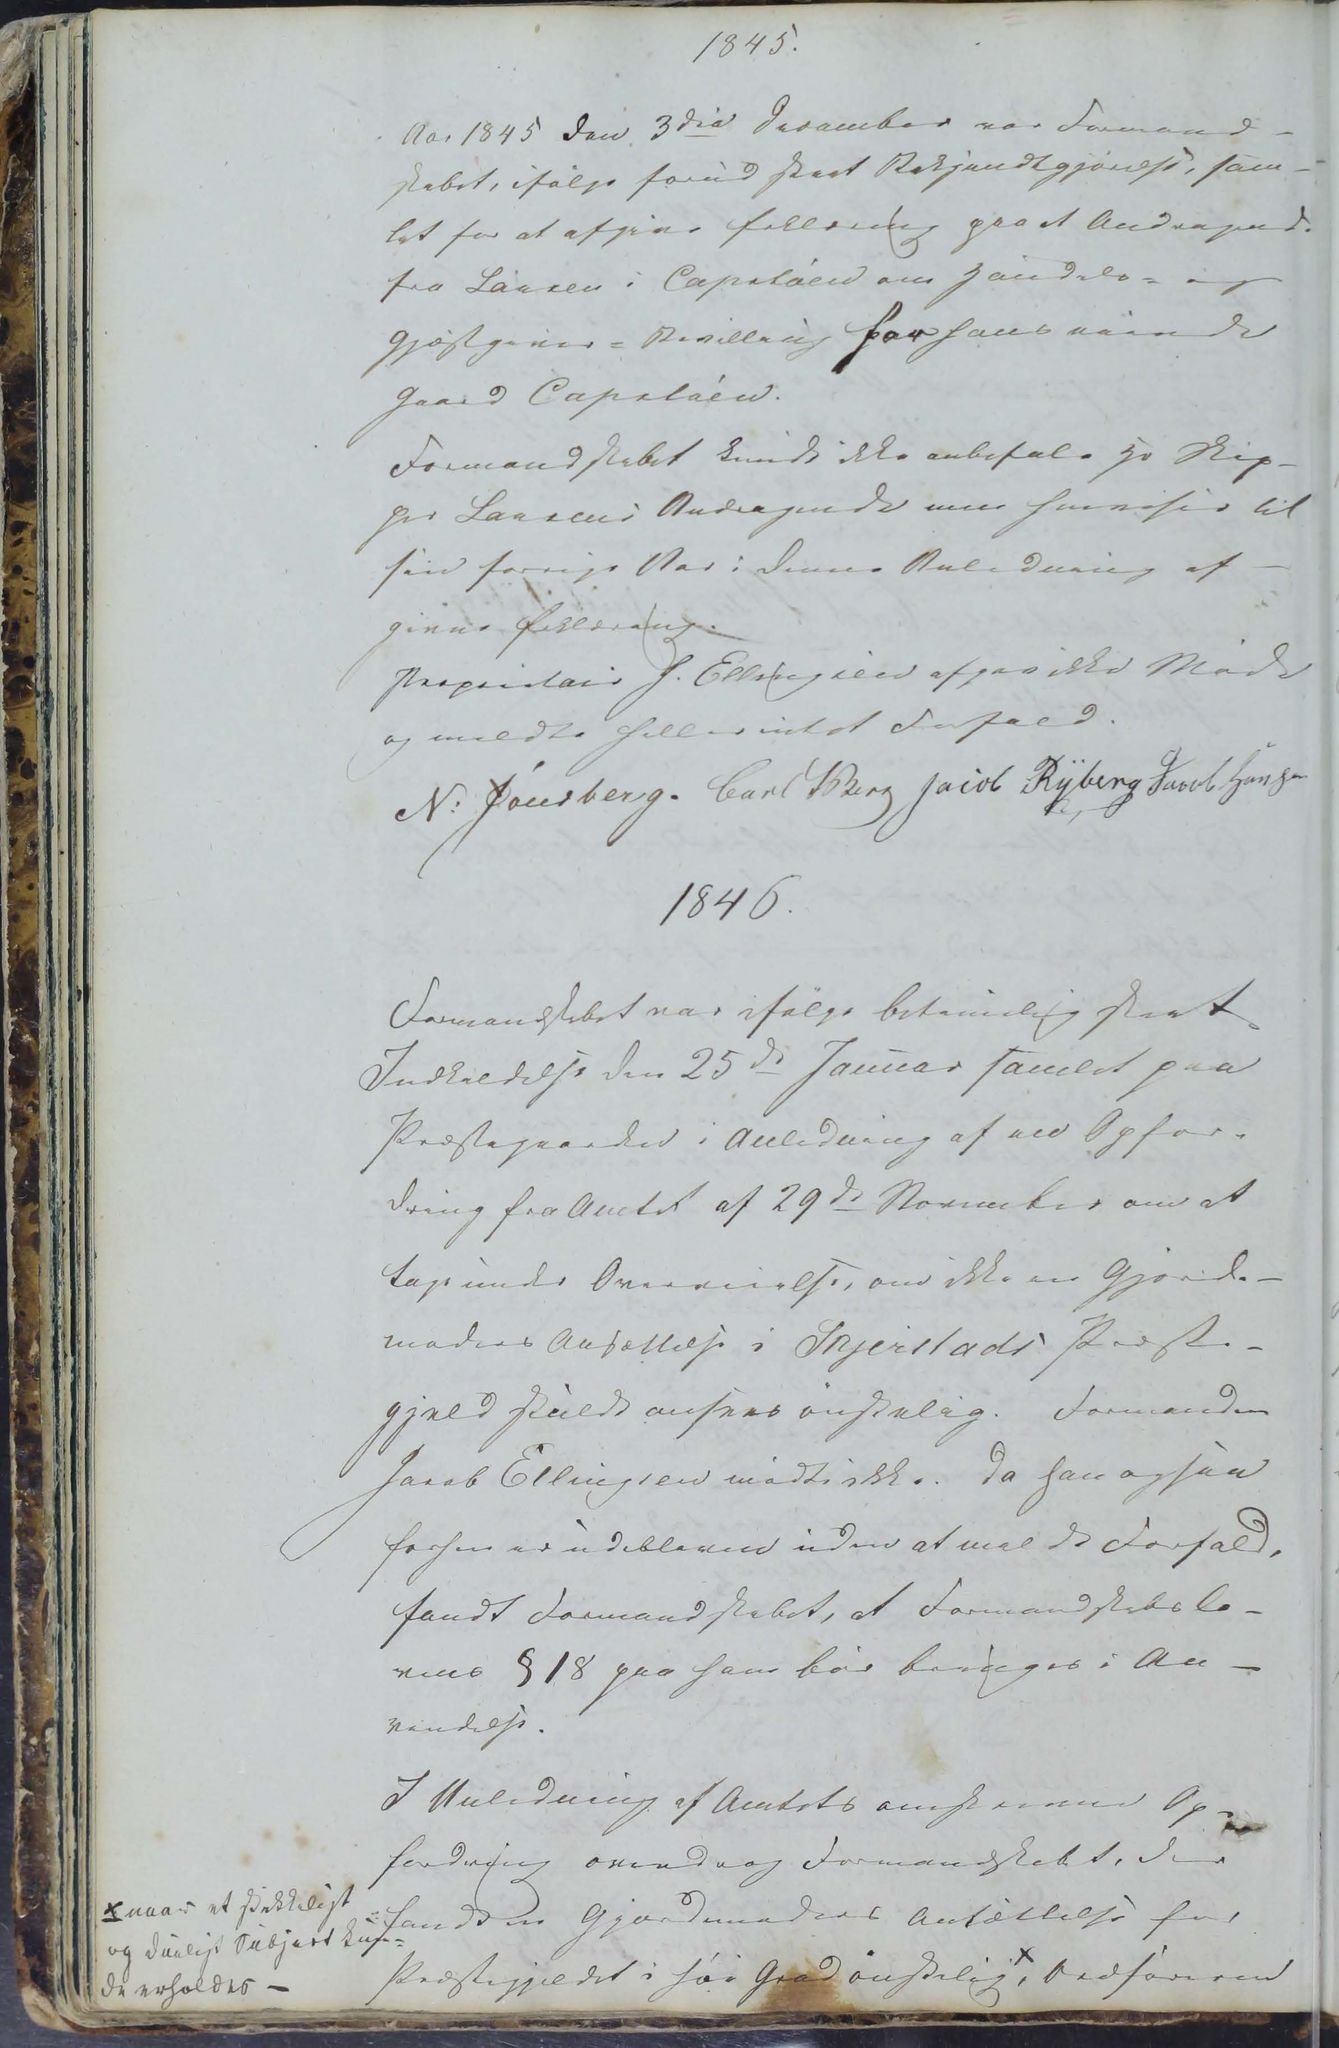 1845.
Aar 1845 den 3die December var Formand-
skabet, ifølge forud skeet Bekjendtgjørelse, sam-
let for at afgive Erklæring paa et Andragende
fra Larsen i Capstøen om Handels- og
Gjæstgiver-Bevilling for hans eiende
Gaard Capstøen.
Formandskabet kunde ikke anbefale Hr Skip-
per Larsens Andragende men henviser til
sin forrige Aar i denne Anledning af-
givne Erklæring.
Proprietair J. Ellingsen afgav ikke Møde
og meldte heller intet Forfald.
N: Jónsberg. Carl Berg Jacob Rÿberg Jacob Hansen
1846.
Formandskabet var ifølge betimelig skeet
Indkaldelse den 25de Januar samlet paa
Præstegaarden i Anledning af en Opfor-
dring fra Amtet af 29de November om at
tage under Overveielse, om ikke en Gjorde-
moders Ansættelse i Skjerstads Præste-
gjeld skulde ansees ønskelig. Formanden
Jacob Ellingsen mødte ikke. Da han ogsaa
forhen er udebleven uden at melde Forfald,
fandt Formandskabet, at Formandskabslo-
vens § 18 paa ham bør bringes i An-
vendelse.
I Anledning af Amtets omskrevne Op-
fordring overdrog Formandskabet, der
fandt en Gjordemoders Ansættelse for
Præstegjeldet i høi Grad ønskelig x, Ordføreren
x naar et skikkeligt
og dueligt Subject kun-
de erholdes -